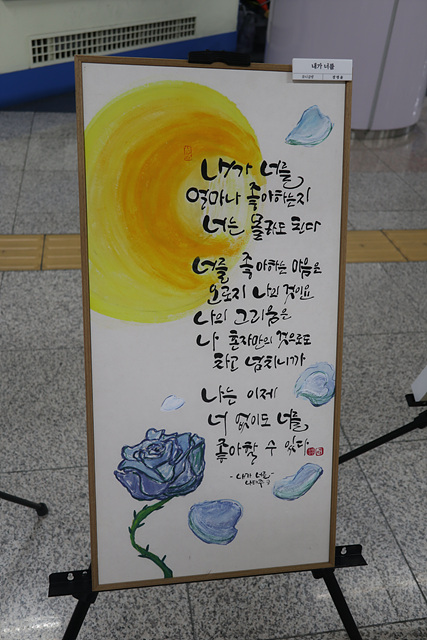 내가 너를
내가 너를
얼마나 좋아하는지
너는 몰라도 된다
너를 좋아하는 마음은
오로지 나의 것이요
나의 그리움은
나 혼자만의 것으로도
차고 넘치니까
나는 이제
너 없이도 너를
좋아할 수 있다
- 내가 너를 -